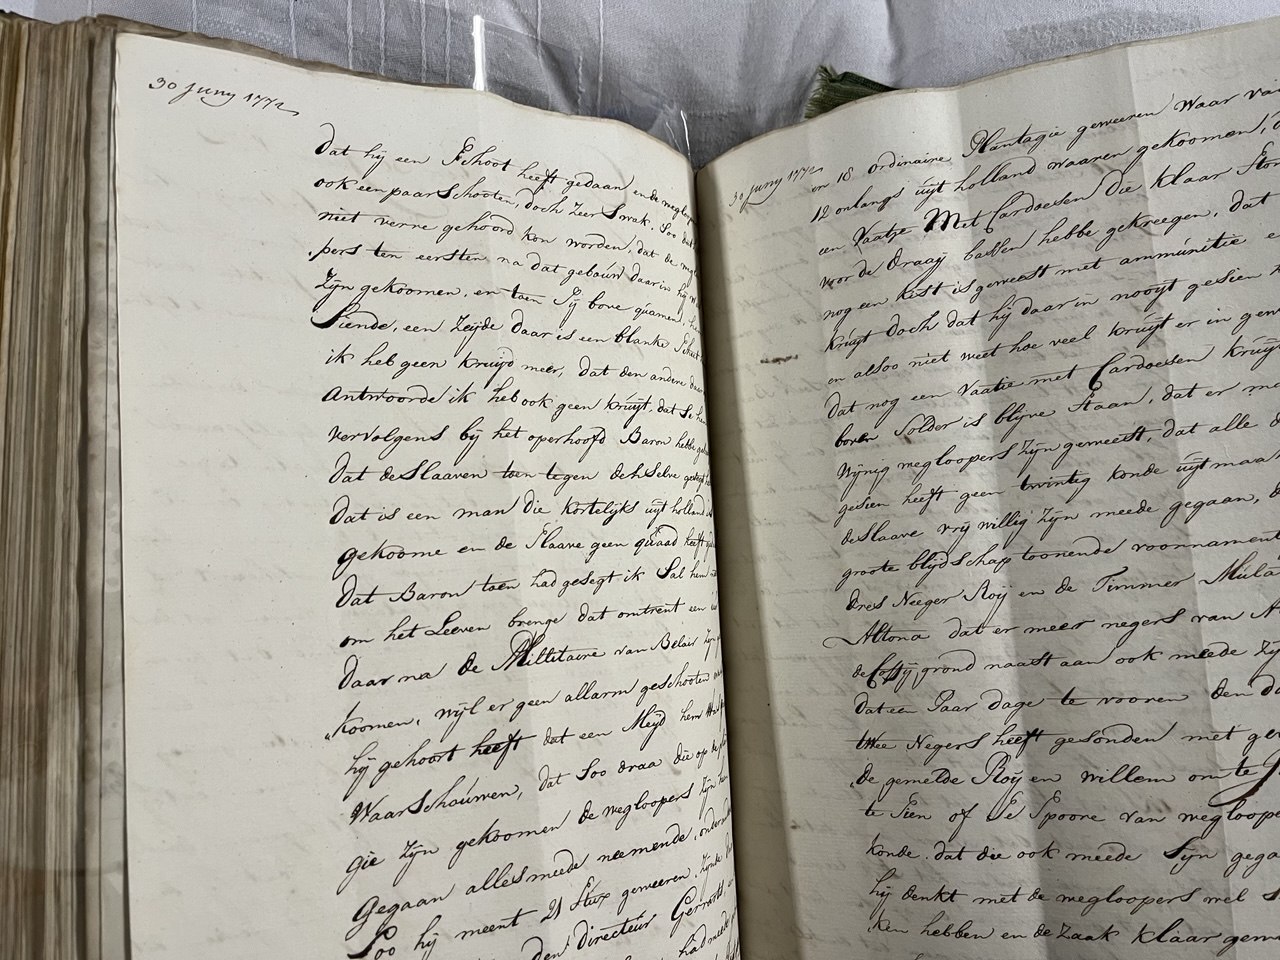 30 Juny 1772
Dat hij een Schoot heeft gedaan en de
ook een paar Schooten, doch zeer Swak, Soo dat
niet verre gehoord kon worden, dat de
pers ten eersten na dat gebouw daar in hij
Zijn gekoomen, en toen Sij bove quamen,
Siende, een Zeijde daar is een blanke
ik heb geen kruijd meer, dat den andere
Antwoorde ik heb ook geen kruijt, dat Se
vervolgens bij het operhoofd Baron hebbe
dat de Slaaven toen tegen deh Selve
dat is een man die kortelijks uijt holland
gekoome en de Slaave geen quaad heeft
dat Baron toen had gesegt ik Sal hem
om het Leeven brenge dat omtrent een
daar na de Millitaire van Belair
koomen, wijl er geen allarm geschooten
hij gehoort heeft dat een Meijd hem
Waarschouwen, dat Soo draa die op
gie Zijn gekoomen de wegloopers Zijn
Gegaan alles meede neemende,
Soo hij meent 21 Stux geweeren Zijnde
den directeur Gerrarts,
had meede
30 Juny 1772
en 18 ordinaire Plantagie geweeren Waar
12 onlangs uijt holland waaren gekoomen,
een Vaatje Met Cardoesen die klaar
voor de draaij bassen hebbe gekreegen, dat
nog een kist is geweest met ammunitie
kruijt doch dat hij daar in nooijt gesien
en alsoo niet weet hoe veel kruijt er in
dat nog een Vaatie met Cardoesen
boven Solder is blijve Staan, dat er
Wijnig wegloopers Zijn geweest, dat alle
gesien heeft geen twintig konde uijtmaak
de Slaave vrij willig Zijn meede gegaan,
groote blijdschap toonende voornament
dres Neeger Roij en de Timmer
Altona dat er meer negers van
de Coffij grond naast aan ook meede
dat een Paar dage te vooren den
twee Negers heeft gesonden met
de gemelde Roij en willem om te
te Sien of Se Spoore van
konde, dat die ook meede Sijn
hij denkt met de wegloopers wel
ken hebben en de Zaak klaar